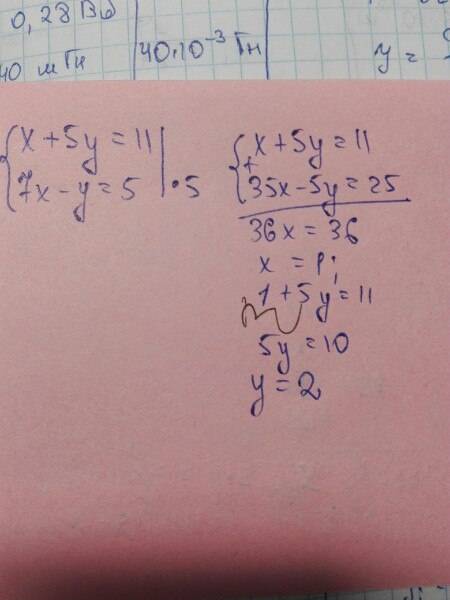 0,28 Вб
40 мГн
40·10⁻³ Гн
y =
{ x + 5y = 11
7x - y = 5 | · 5
{ x + 5y = 11
+
35x - 5y = 25
36x = 36
x = 1;
1 + 5y = 11
5y = 10
y = 2